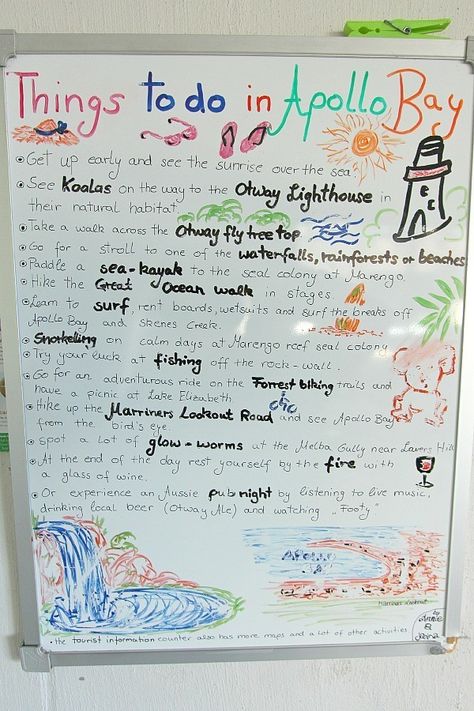 Things to do in Apollo Bay
• Get up early and see the sunrise over the sea.
• See Koalas on the way to the Otway Lighthouse in
their natural habitat.
• Take a walk across the Otway fly tree top
• Go for a stroll to one of the waterfalls, rainforests or beaches
• Paddle a sea-kayak to the seal colony at Marengo.
• Hike the Great Ocean walk in stages.
• Learn to surf, rent boards, wetsuits and surf the breaks off
Apollo Bay and Skenes Creek.
• Snorkelling on calm days at Marengo reef seal colony
• Try your luck at fishing off the rock-wall.
• Go for an adventurous ride on the Forrest biking trails and
have a picnic at Lake Elizabeth
• Hike up the Marriners Lookout Road and see Apollo Bay
from the bird's eye.
• Spot a lot of glow-worms at the Melba Gully near Lavers Hill
• At the end of the day rest yourself by the fire with
a glass of wine.
• Or experience an Aussie pub night by listening to live music,
drinking local beer (Otway Ale) and watching „Footy"
Apollo
Marriners Lookout
by
Annie
&
• the tourist information counter also has more maps and a lot of other activities